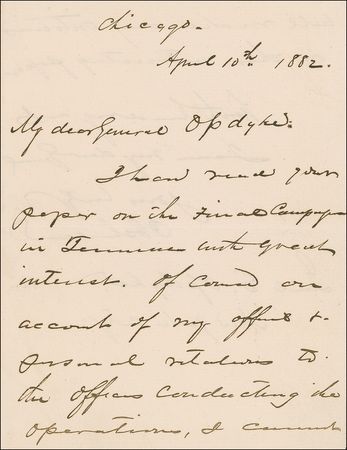 Chicago.
April 10th. 1882.
My dear General Opdyke:
I have read your
paper on the Final Campaign
in Tennessee with great
interest. Of course on
account of my official &
personal relations to
the officers conducting the
operations, I cannot